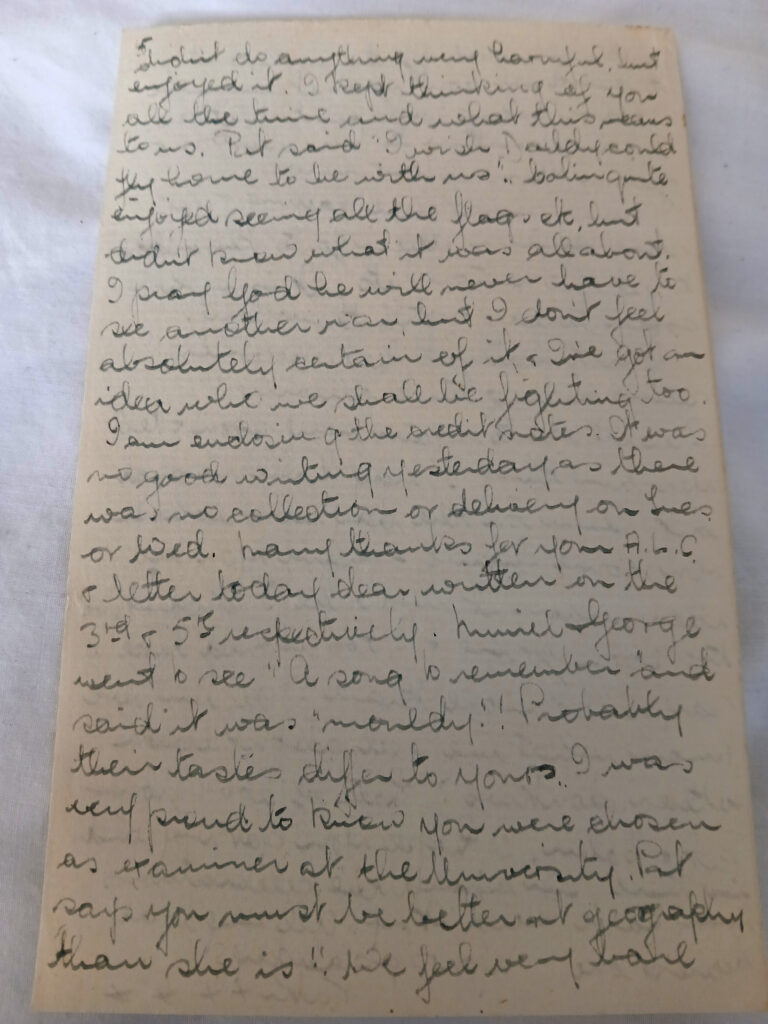 5
didn't do anything very harmful, but
enjoyed it. I kept thinking of you
all the time and what this means
to us. Pat said "I wish Daddy could
fly home to be with us". Colin quite
enjoyed seeing all the flags etc, but
didn't know what it was all about.
I pray God he will never have to
see another war, but I don't feel
absolutely certain of it, & I've got an
idea who we shall be fighting too.
I am enclosing the credit notes. It was
no good writing yesterday as there
was no collection or delivery on Tues
or Wed. Many thanks for your A.L.C.
& letter today dear, written on the
3rd & 5th respectively. Muriel & George
went to see "A song to remember" and
said it was "mouldy"!! Probably
their tastes differ to yours. I was
very proud to know you were chosen
as examiner at the University. Pat
says you must be better at geography
than she is!! We feel very